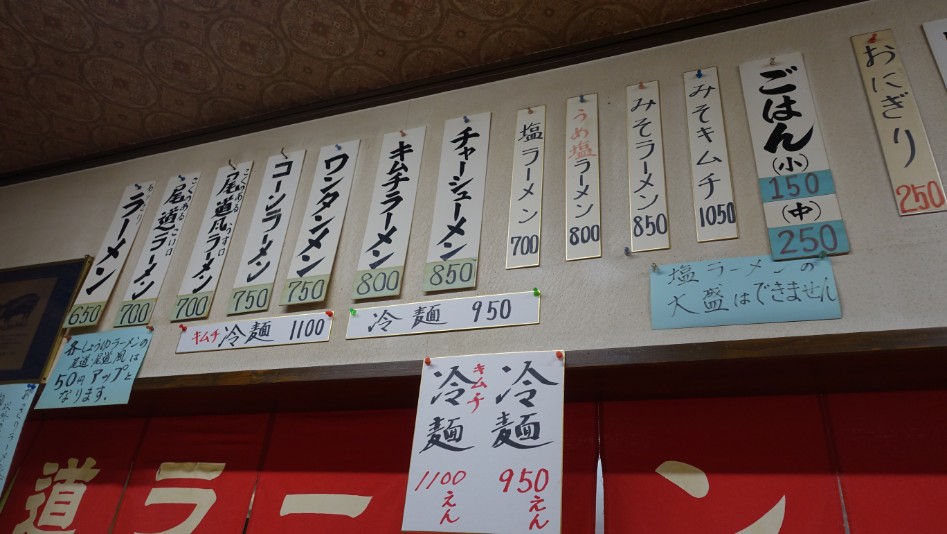 ラーメン
650
尾道ラーメン
こくのある
こい口
700
尾道風ラーメン
こくのある
うす口
700
コーンラーメン
750
ワンタンメン
750
キムチラーメン
800
チャーシューメン
850
塩ラーメン
700
うめ塩ラーメン
800
みそラーメン
850
みそキムチ
1050
ごはん
(小)
150
(中)
250
おにぎり
250
キムチ 冷麺 1100
冷麺 950
塩ラーメンの
大盛はできません
各しょうゆラーメンの
尾道、尾道風は
50円アップと
なります。
冷麺
950えん
キムチ
冷麺
1100えん
道ラーメン